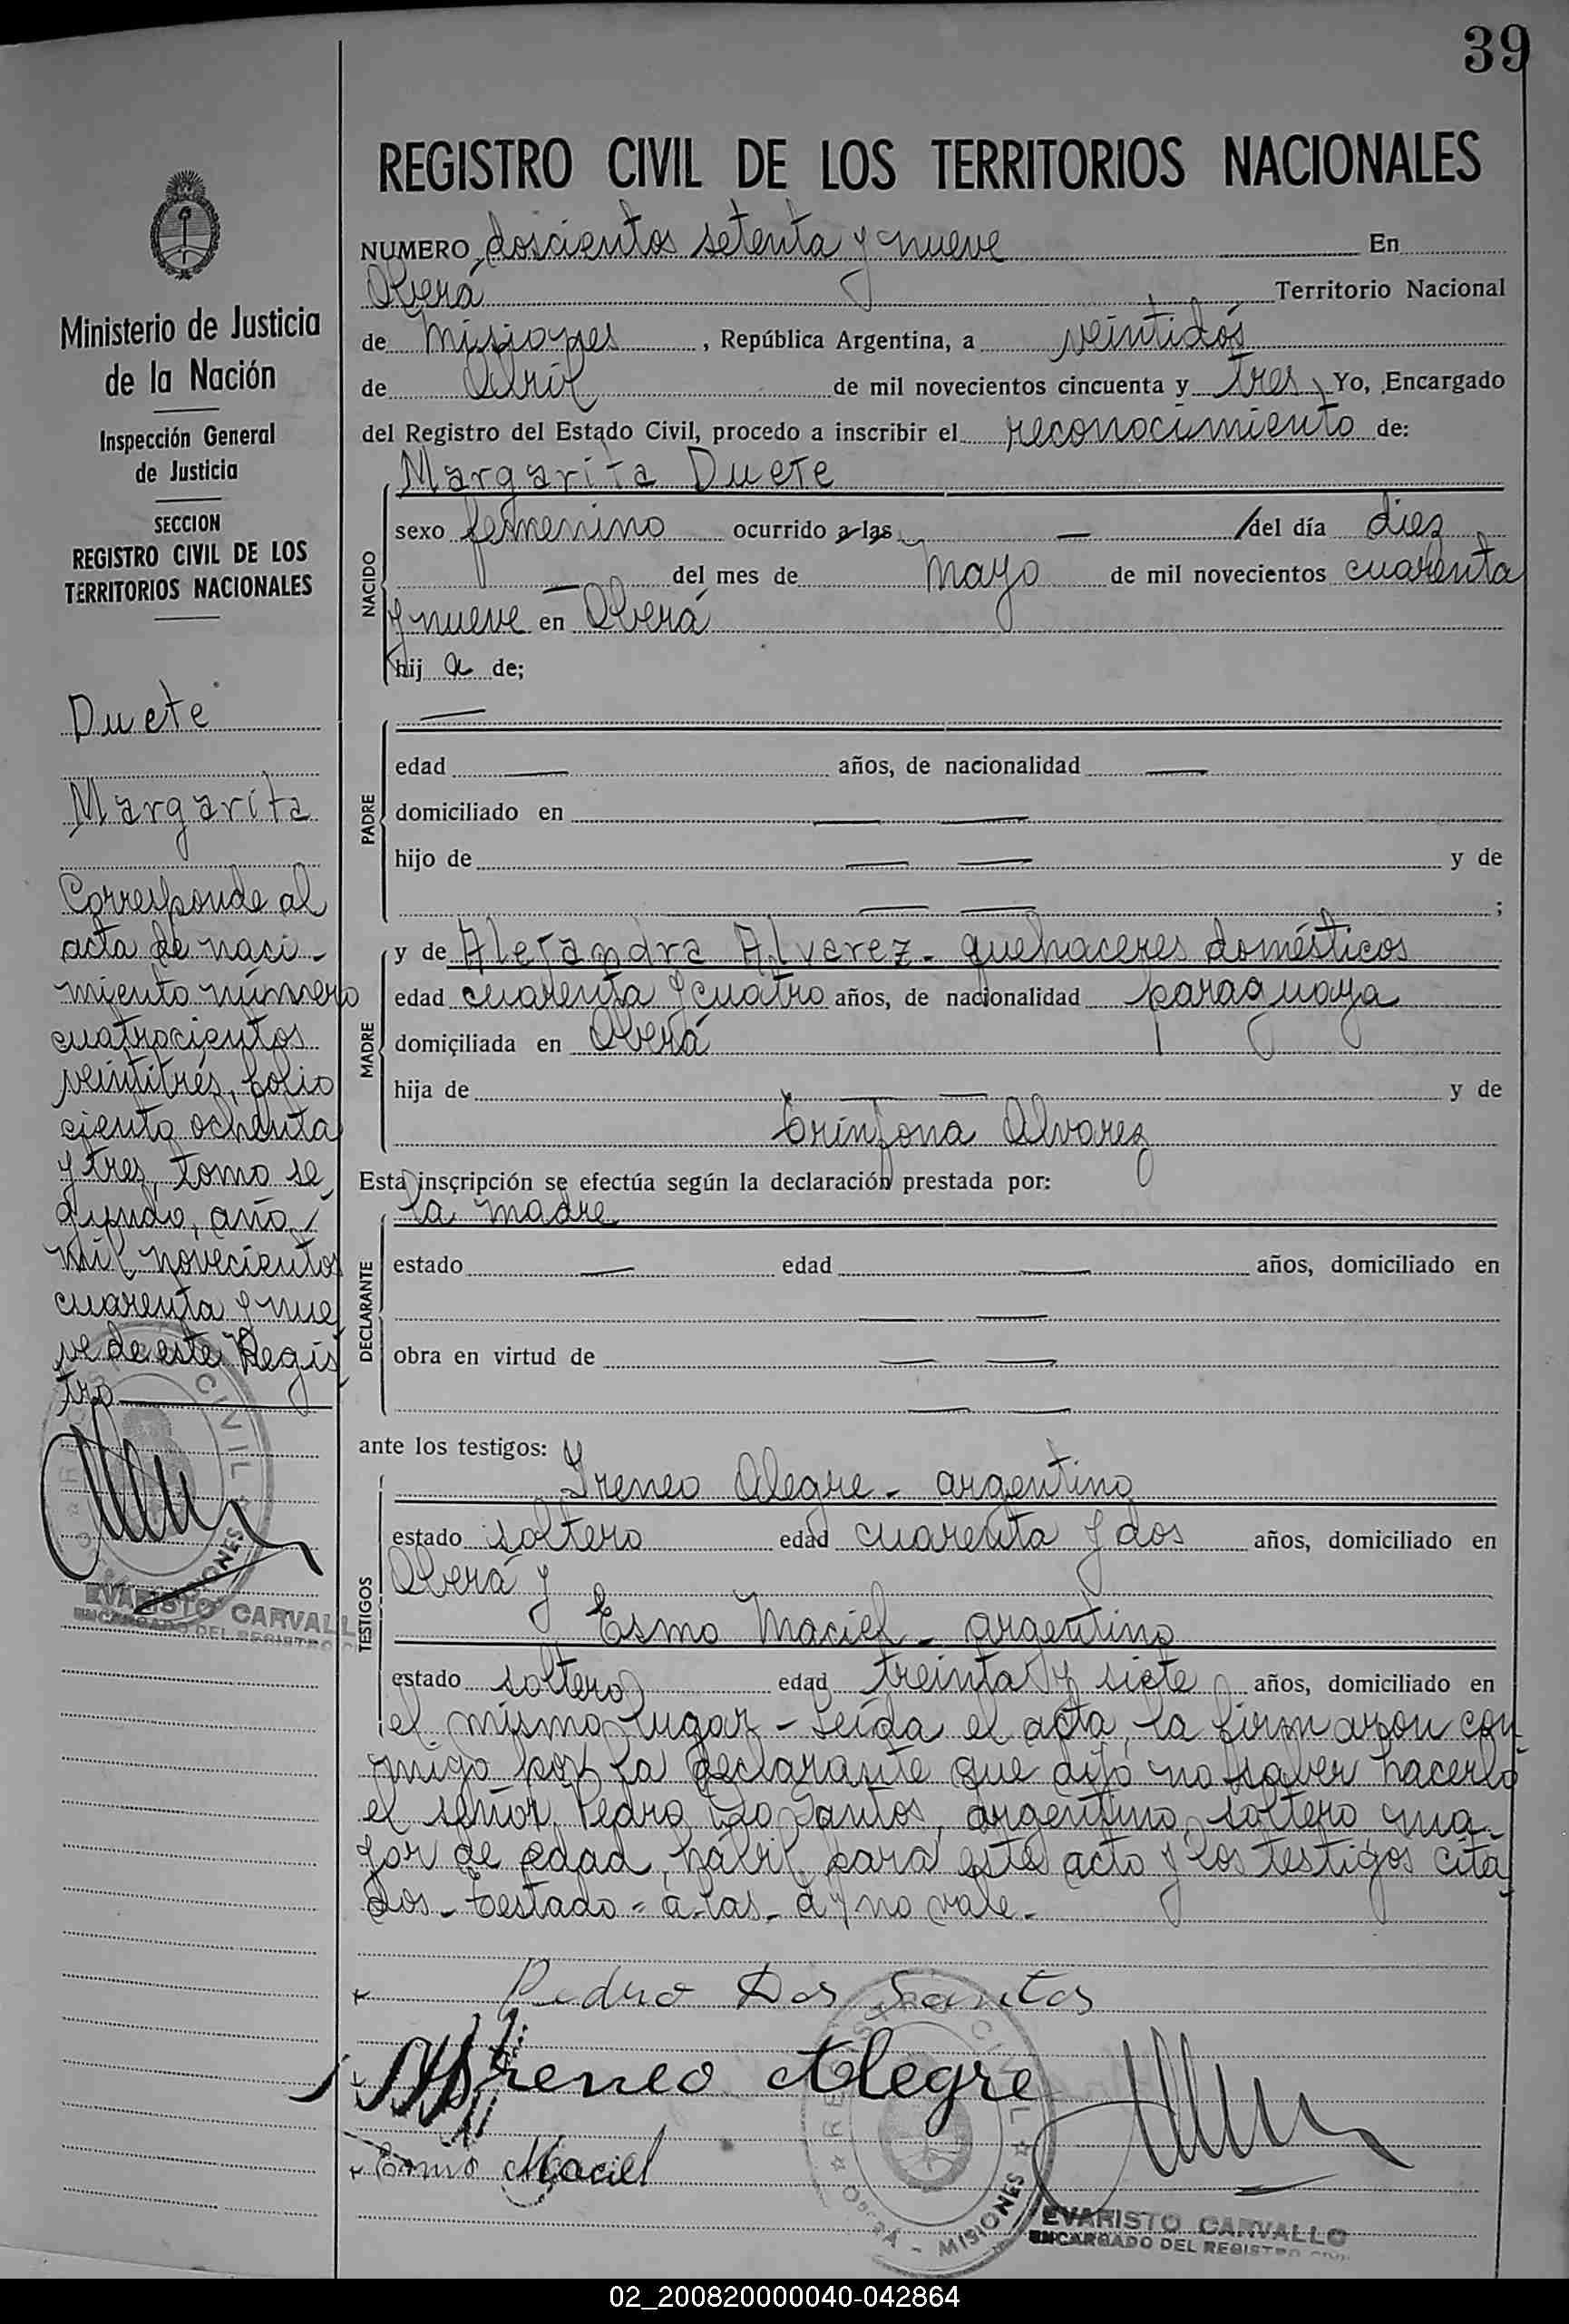 39
REGISTRO CIVIL DE LOS TERRITORIOS NACIONALES
NUMERO doscientos setenta y nueve En
Oberá Territorio Nacional
de Misiones, República Argentina, a veintidós
de Abril de mil novecientos cincuenta y tres, Yo, Encargado
del Registro del Estado Civil, procedo a inscribir el reconocimiento de:
Margarita Duete
NACIDO
sexo femenino ocurrido a las — / del día diez
— del mes de mayo de mil novecientos cuarenta
y nueve en Oberá
hija de;
—
PADRE
edad — años, de nacionalidad —
domiciliado en — —
hijo de — — y de
— — ;
MADRE
y de Alejandra Alvarez - quehaceres domésticos
edad cuarenta y cuatro años, de nacionalidad paraguaya
domiciliada en Oberá
hija de — — y de
Trinfona Alvarez
Esta inscripción se efectúa según la declaración prestada por:
la madre
DECLARANTE
estado — edad — años, domiciliado en
— —
obra en virtud de — —
— —
ante los testigos:
TESTIGOS
Yreneo Alegre - argentino
estado soltero edad cuarenta y dos años, domiciliado en
Oberá y
Esmo Maciel - argentino
estado soltero edad treinta y siete años, domiciliado en
el mismo lugar - Leída el acta, la firmaron con-
migo por la declarante que dijo no saber hacerlo
el señor Pedro Do Santos, argentino, soltero ma-
yor de edad, hábil para este acto y los testigos cita-
dos - Testado = a - las - a / no vale -
Pedro Dos Santos
Yreneo Alegre
Esmo Maciel
REGISTRO CIVIL
OBERÁ - MISIONES
EVARISTO CARVALLO
ENCARGADO DEL REGISTRO CIVIL
Ministerio de Justicia
de la Nación
Inspección General
de Justicia
SECCION
REGISTRO CIVIL DE LOS
TERRITORIOS NACIONALES
Duete
Margarita
Corresponde al
acta de naci-
miento número
cuatrocientos
veintitrés, folio
ciento ochenta
y tres, tomo se-
gundo, año /
mil novecientos
cuarenta y nue-
ve de este Regis-
tro
CIVIL
MISIONES
EVARISTO CARVALL
ENCARGADO DEL REGISTRO C
02_200820000040-042864